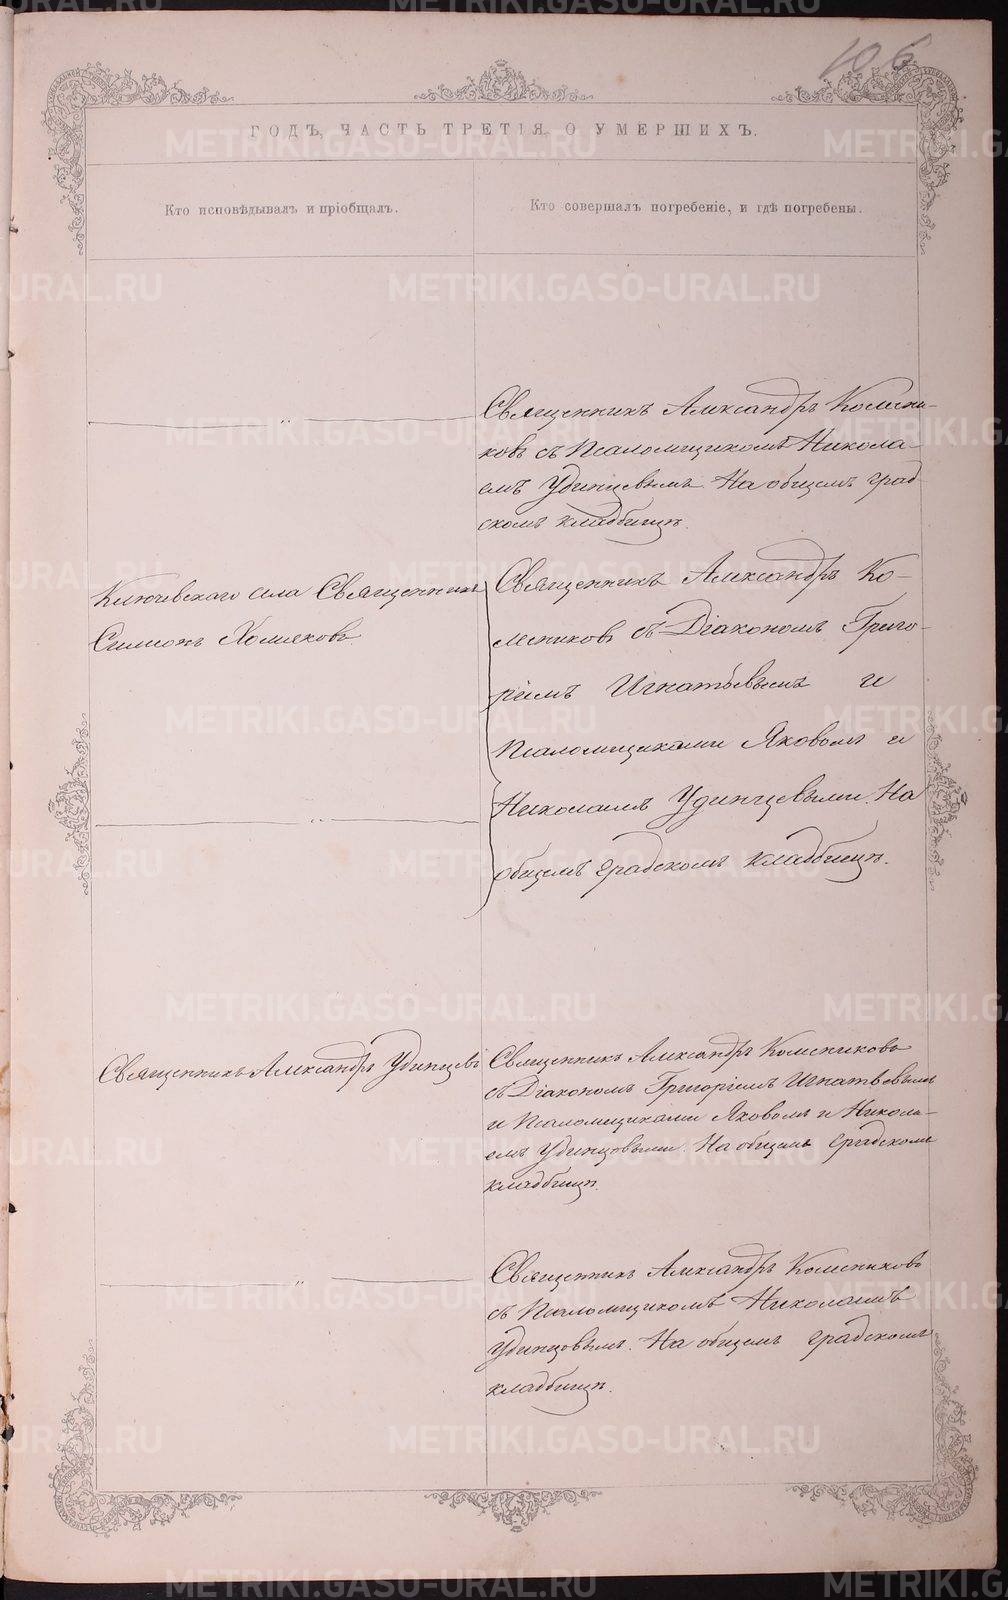 106
ГОДЪ, ЧАСТЬ ТРЕТІЯ, О УМЕРШИХЪ.
Кто исповѣдывалъ и пріобщалъ.
Кто совершалъ погребеніе, и гдѣ погребены.
Священникъ Александръ Колесни-
ковъ съ Псаломщикомъ Никола-
емъ Удинцевымъ. На общемъ град-
скомъ кладбищѣ.
Ключевскаго села Священникъ
Симеонъ Хомяковъ.
Священникъ Александръ Ко-
лесниковъ съ Діакономъ Григо-
ріемъ Игнатьевымъ и
Псаломщиками Яковомъ и
Николаемъ Удинцевыми. На
общемъ градскомъ кладбищѣ.
Священникъ Александръ Удинцевъ
Священникъ Александръ Колесниковъ
съ Діакономъ Григоріемъ Игнатьевымъ
и Псаломщиками Яковомъ и Никола-
емъ Удинцовыми. На общемъ градскомъ
кладбищѣ.
Священникъ Александръ Колесниковъ
съ Псаломщикомъ Николаемъ
Удинцовымъ. На общемъ градскомъ
кладбищѣ.
METRIKI.GASO-URAL.RU